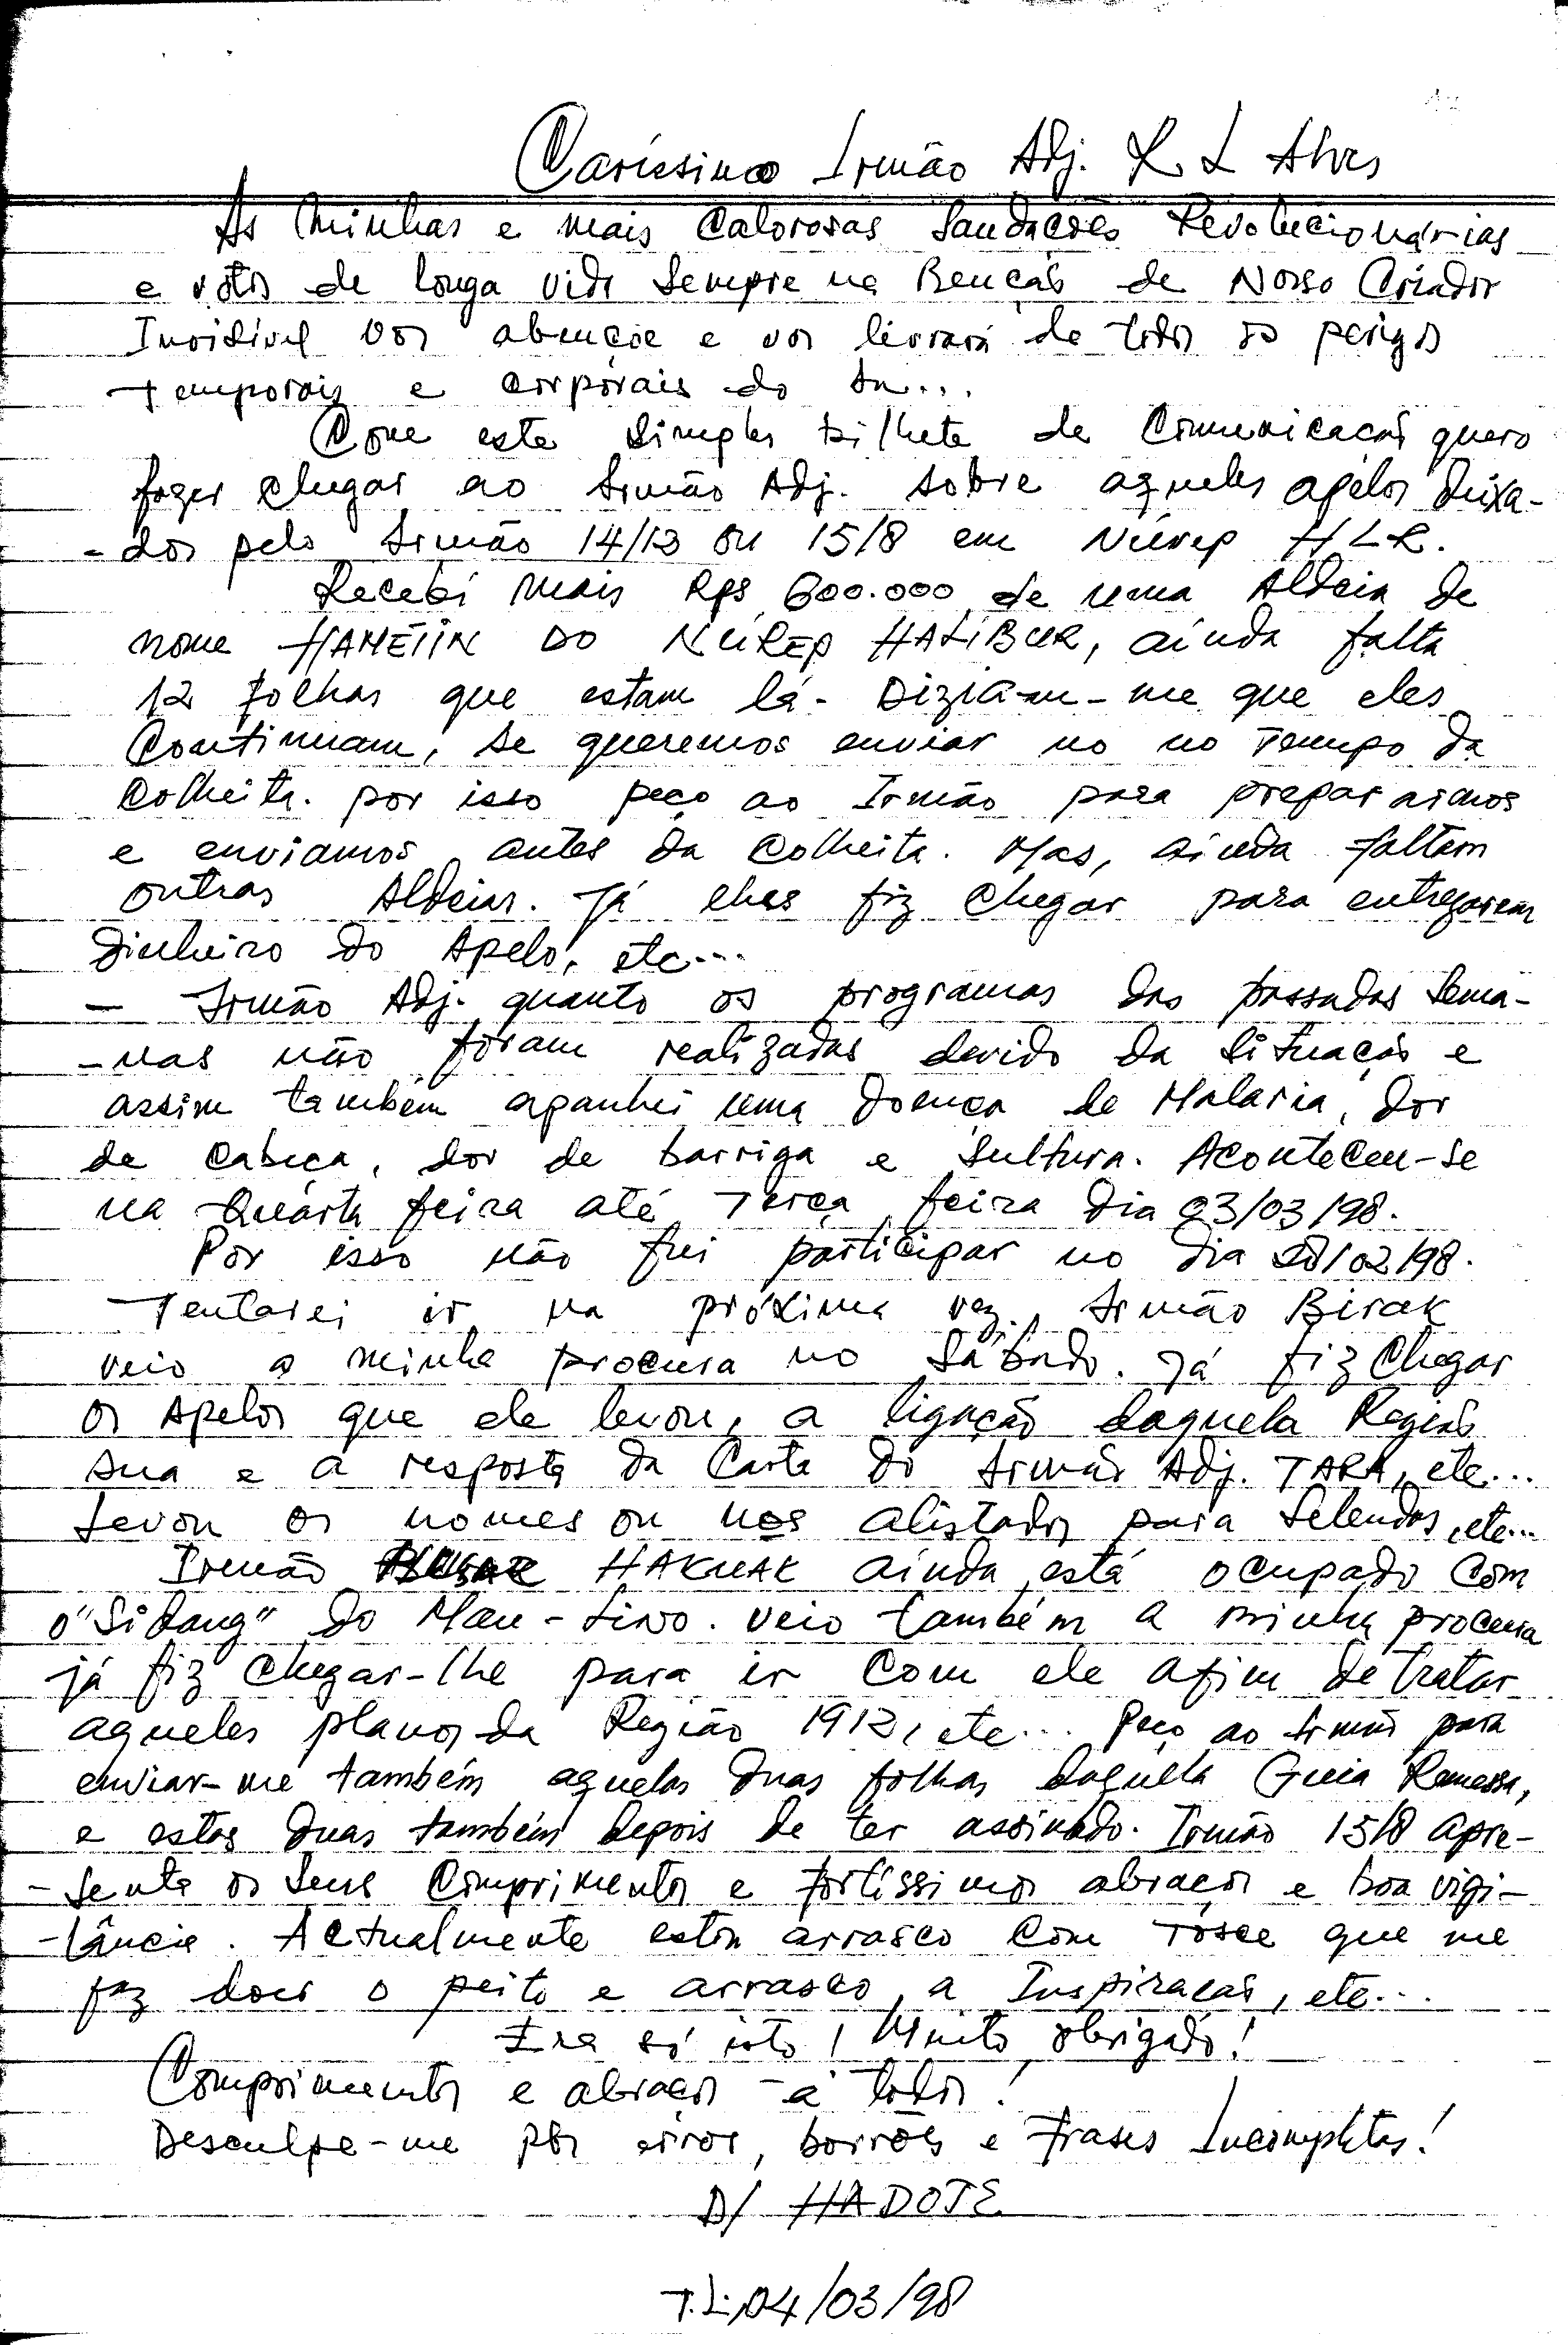 Caríssimo Irmão Adj. L. L Alves
As minhas e mais Calorosas Saudacões Revolucionárias
e votos de longa vida Sempre na Bencão de Nosso Criador
Invisivel vos abençoe e vos livrará de todos os perigos
Temporais e corporais do
Com este Simples bilhete de Comunicacão quero
fazer chegar ao Irmão Adj. sobre aqueles apelos deixa-
-dos pelo Irmão 14/13 ou 15/8 em Núrep HLR.
Recebi mais Rps 600.000 de uma Aldeia de
nome HAMETIN DO NÚREP HALIBUR, ainda falta
12 folhas que estam lá. Diziam-me que eles
Continuam, se queremos enviar no no Tempo da
Colheita. por isso peço ao Irmão para preparármos
e enviamos antes da Colheita. Mas, ainda faltam
outras Aldeias. Já lhes fiz chegar para entregarem
dinheiro do Apelo, etc...
- Irmão Adj. quanto os programas das passadas Sema-
-nas não foram realizadas devido da Situacão e
assim também apanhei uma doença de Malaria, dor
de cabeça, dor de barriga e Sultura. Aconteceu-se
na Quárta feira até Terça feira dia 03/03/98.
Por isso não fui participar no dia 28/02/98.
Tentarei ir na próxima vez. Irmão Birak
veio a minha procura no Sábado. Já fiz Chegar
os Apelos que ele levou, a ligação daquela Região
sua e a resposta da Carta do Irmão Adj. TARA, etc...
Levou os nomes ou nos alistados para Selendas, etc...
Irmão HAKNAK ainda está ocupado com
o "Sidang" do Mau-Lino. veio também a minha procura
já fiz chegar-lhe para ir com ele afim de tratar
aqueles planos da Região 1912, etc... Peço ao Irmão para
enviar-me também aquelas duas folhas daquela Guia Remessa,
e estas duas também depois de ter assinado. Irmão 15/8 apre-
-senta os Seus Comprimentos e fortíssimos abraços e boa vigi-
-lância. Actualmente estou arrasco com Tosse que me
faz doer o peito e arrasco a Inspiracão, etc...
Era só isto! Muito obrigado!
Comprimentos e abraços á todos!
Desculpe-me por erros, borrões e frases Incompletas!
D/ HADOTE
T.L, 04/03/98